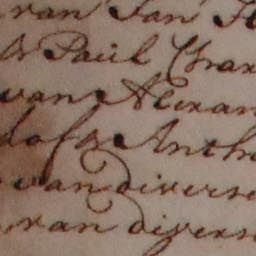 van Jan
Paül Chrar
van Alexan
dofs Antho
van diverse
van divers